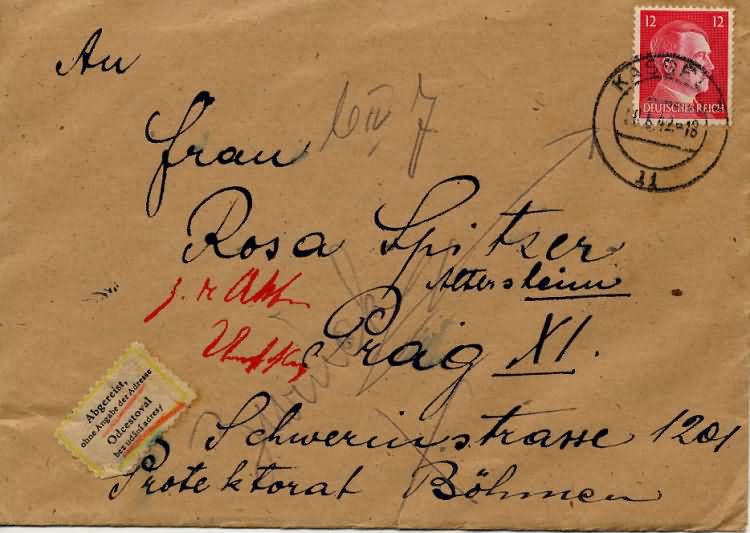 12 12
DEUTSCHES REICH
KASSEL
11
An
Frau
6 IV 7
Rosa Spitzer
Altersheim
Prag XI.
Schwerinstrasse 1201
Protektorat Böhmen
zurück
Abgereist,
ohne Angabe der Adresse
Odcestoval
bez udání adresy